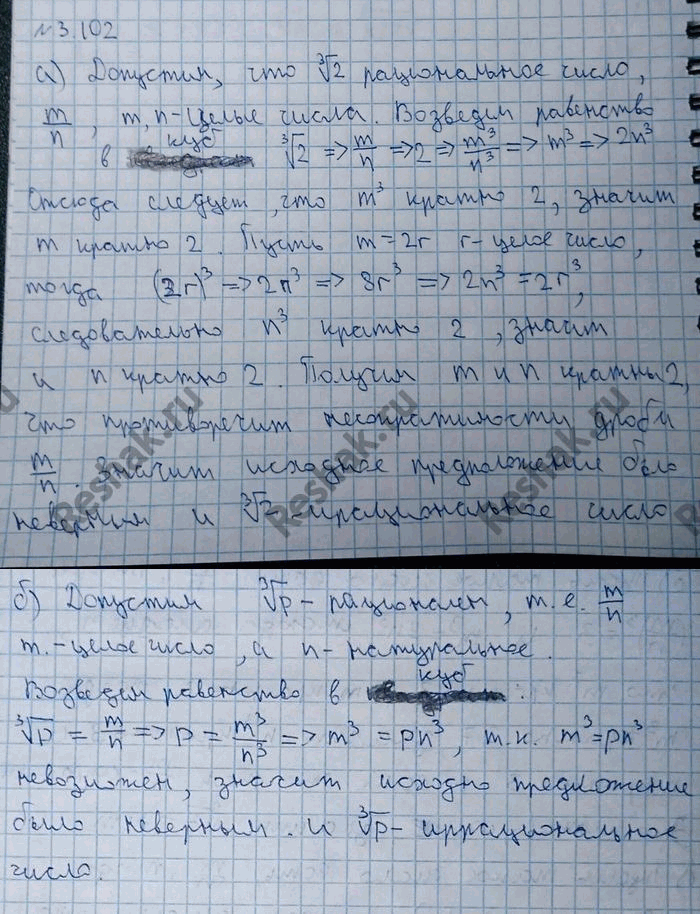 №3.102
а) Допустим, что ∛2 рациональное число,
m/n, m, n-целые числа. Возведем равенство
в куб ∛2 => m/n => 2 => m³/n³ => m³ => 2n³
Отсюда следует, что m³ кратно 2, значит
m кратно 2. Пусть m = 2r r-целое число,
тогда (2r)³ => 2n³ => 8r³ => 2n³ = 2r³,
следовательно n³ кратно 2, значит
и n кратно 2. Получим m и n кратны 2,
что противоречит несократимости дроби
m/n. Значит исходное предположение было
неверным и ∛2-иррациональное число
б) Допустим ∛p - рационален, т.е. m/n
m.-целое число, а n-натуральное.
Возведем равенство в куб :
∛p = m/n => p = m³/n³ => m³ = pn³, т.к. m³=pn³
невозможен, значит исходно предложение
было неверным. и ∛p-иррациональное
число.
Reshak.ru
Reshak.ru
Reshak.ru